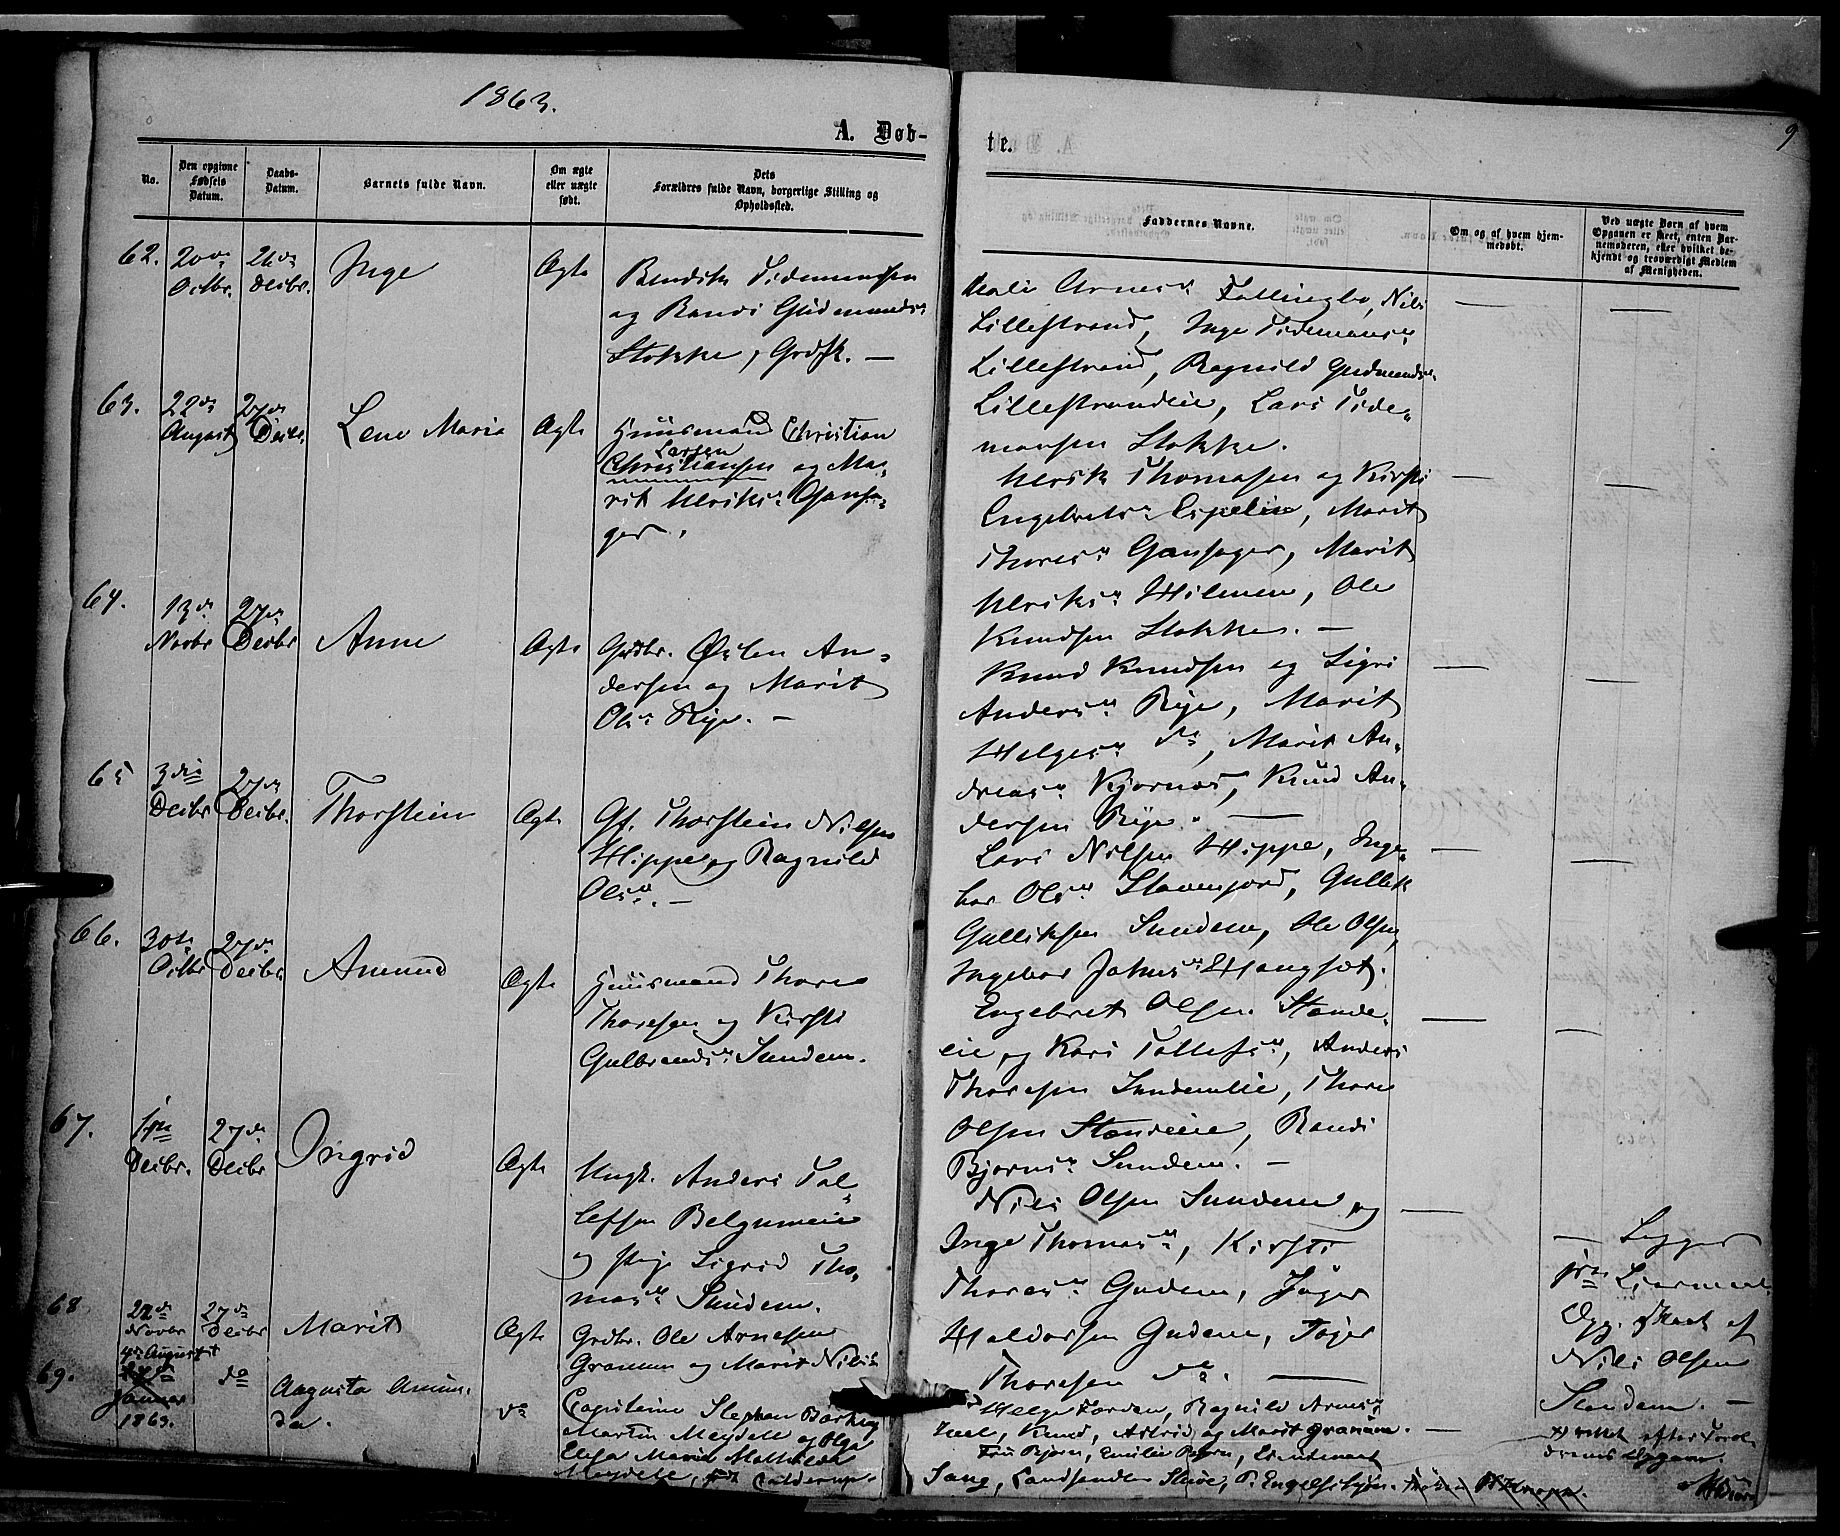 1863.
A. Døb-
te.
9
No.
Den opgivne Fødsels Datum.
Daabs-Datum.
Barnets fulde Navn.
Om ægte eller uægte født.
Dets Forældres fulde Navn, borgerlige Stilling og Opholdssted.
Faddernes Navne.
Om og af hvem hjemmedøbt.
Ved uægte Børn af hvem Opgaven er skeet, enten Barnemoderen, eller hvilket bekjendt og troværdigt Medlem af Menigheden.
62.
20de Octbr.
26de Decbr.
Inge
Ægte
Bendik Tidemandsen
og Randi Gudmundsdr
Stokke, Grdsk. —
Lillestrand, Inge Tidemansdr
Lillestrand, Ragnild Gudmundsdr
Lillestrandeie, Lars Tide-
mansen Stokke.
63.
22de August
27de Decbr.
Lene Maria
Ægte
Huusmand Christian
Larsen
Christiansen og Ma-
rit Ulriksdr Gansa-
ger.
Ulrik Thomasen og Kirsti
Engebretsdr Espelien, Marit
Thoresdr Gansager, Marit
Ulriksdr Hilmen, Ole
Knudsen Stokke. —
64.
13de Novbr
27de Decbr
Anne
Ægte
Grdbr. Østen An-
dersen og Marit
Olsdr Rye. —
Knud Knudsen og Sigri
Andersdr Rye, Marit
Helgesdr do, Marit An-
dreasdr Kjørnæs, Knud An-
dersen Rye. —
65
3die Decbr
27de Decbr.
Thorstein
Ægte
Gf. Thorstein Nilsen
Hippe, og Ragnild
Olsdr. —
Lars Nilsen Hippe, Inge-
bor Olsdr Stavenjord, Gullik
Gulliksen Sundem, Ole Olsen,
Ingebor Johnsdr Haugsæt.
66.
30te Octbr
27de Decbr.
Amund
Ægte
Huusmand Thore
Thoresen og Kirsti
Gulbrandsdr Sundem.
Engebret Olsen Stande-
eie, og Kari Tollefsdr, Anders
Thoresen Sundemeie, Thore
Olsen Standeeie, Randi
Bjørnsdr Sundem. —
67.
1ste Decbr.
27de Decbr
Ingrid
Ægte
Ungk. Anders Tol-
lefsen Belgumeie
og Pige Sigrid Tho-
masdr Sundem.
Nils Olsen Sundem og
Inge Thomasdr, Kirsti
Thoresdr Gudem, Jøger
Haldorsen Gudem, Jøger
Thoresen do. —
Opg. skeet af
Nils Olsen
Sundem. —
68
22de Novbr
27de Decbr
Marit
Ægte
Grdbr. Ole Arnesen
Granum og Marit Nilsdr
Helge Jorden, Ragnild Arnesdr
Knud, Astrid og Marit Granum. —
69.
4de August
Januar
1863.
do
Augusta Amun-
da.
do
Capitaine Stephan
Martin Meydell og Olga
Elisa Maria Mathilde
Meydell, født
Fru Bjørn, Emilie Bjørn,
rettet efter Foræl-
drenes Opgave.